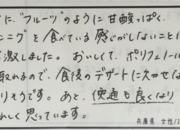 に、"フルーツ"のように甘酸っぱく、
ニング を食べている感じがしないことに
激しました。おいしくて、ポリフェノール
取れるので、食後のデザートに欠かせな
りそうです。あと、便通も良くなり
れしく思っています。
兵庫県 女性